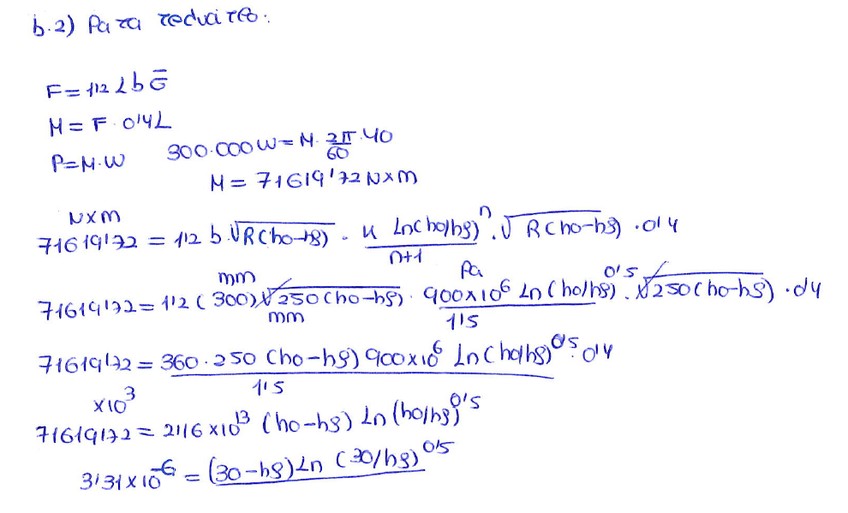 b.2) Para reducirlo:
F = 1'2 L b σ̄
M = F · 0'4 L
P = M · W 300.000 W = M · 2π/60 · 40
M = 71619'72 N x m
N x m
71619'72 = 1'2 b · √R(ho-hf) · K Ln(ho/hf)^n / n+1 · √R(ho-hf) · 0'4
mm Pa
71619'72 = 1'2 (300) √250(ho-hf) · 900x10^6 Ln(ho/hf)^0'5 / 1'5 · √250(ho-hf) · 0'4
mm
71619'72 = 360 · 250 (ho-hf) 900x10^6 Ln(ho/hf)^0'5 · 0'4 / 1'5
x10^3
71619'72 = 2'16 x 10^13 (ho-hf) Ln(ho/hf)^0'5
3'31 x 10^-6 = (30-hf) Ln (30/hf)^0'5